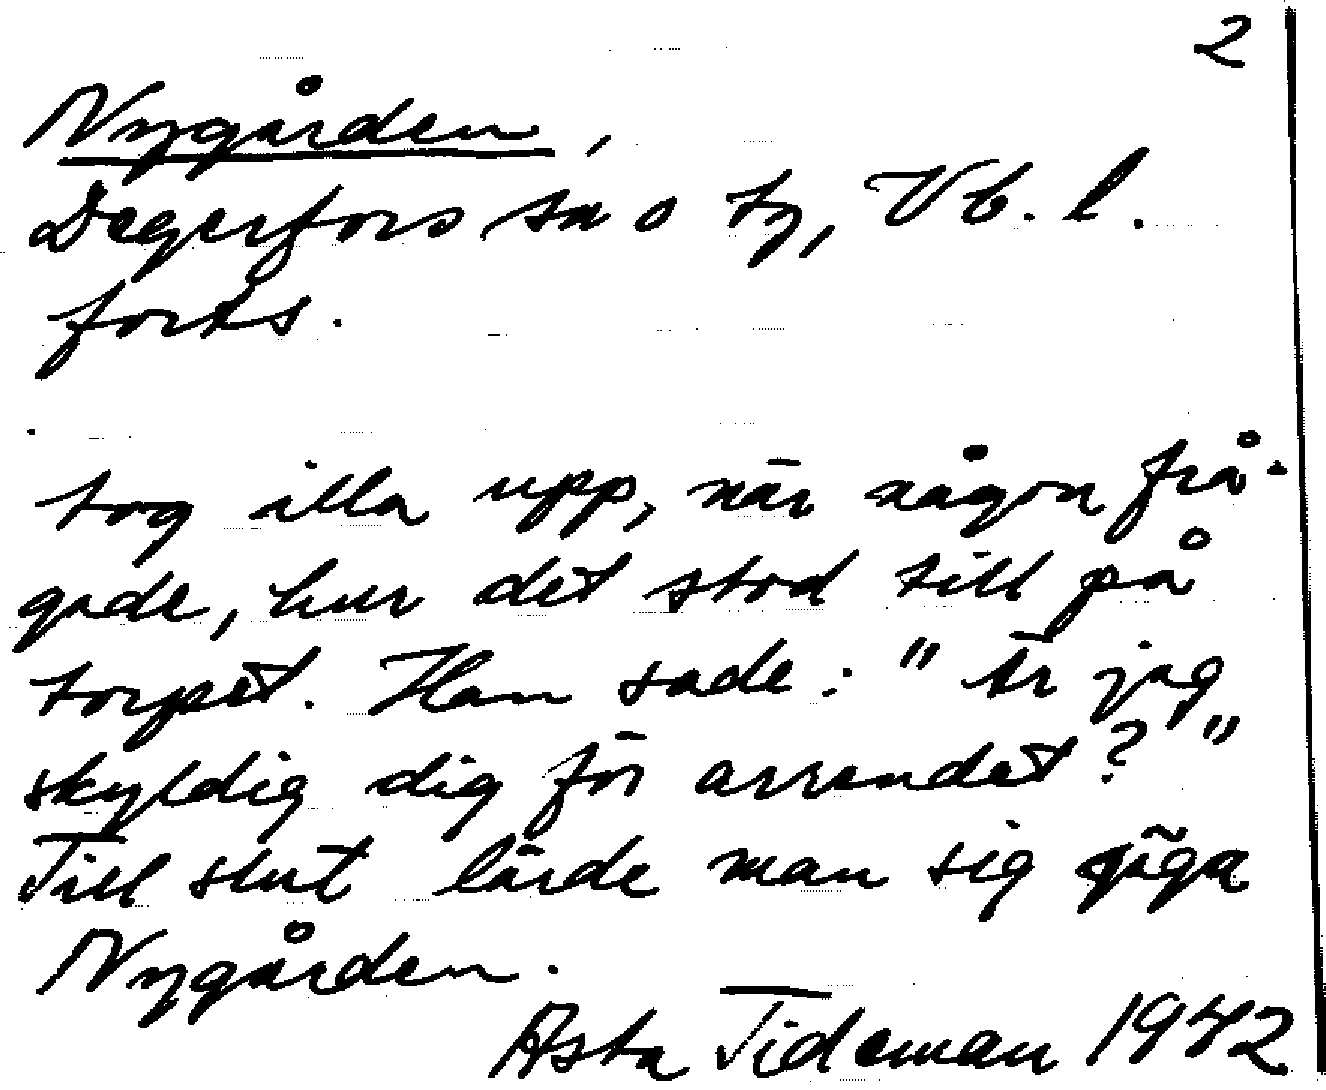 2
Nygården,
Degerfors sn o tg, Vb. l.
forts.
tog illa upp, när någon frå-
gade, hur det stod till på
torpet. Han sade: "Är jag
skyldig dig för arrendet?"
Till slut lärde man sig säga
Nygården.
Asta Tideman 1942